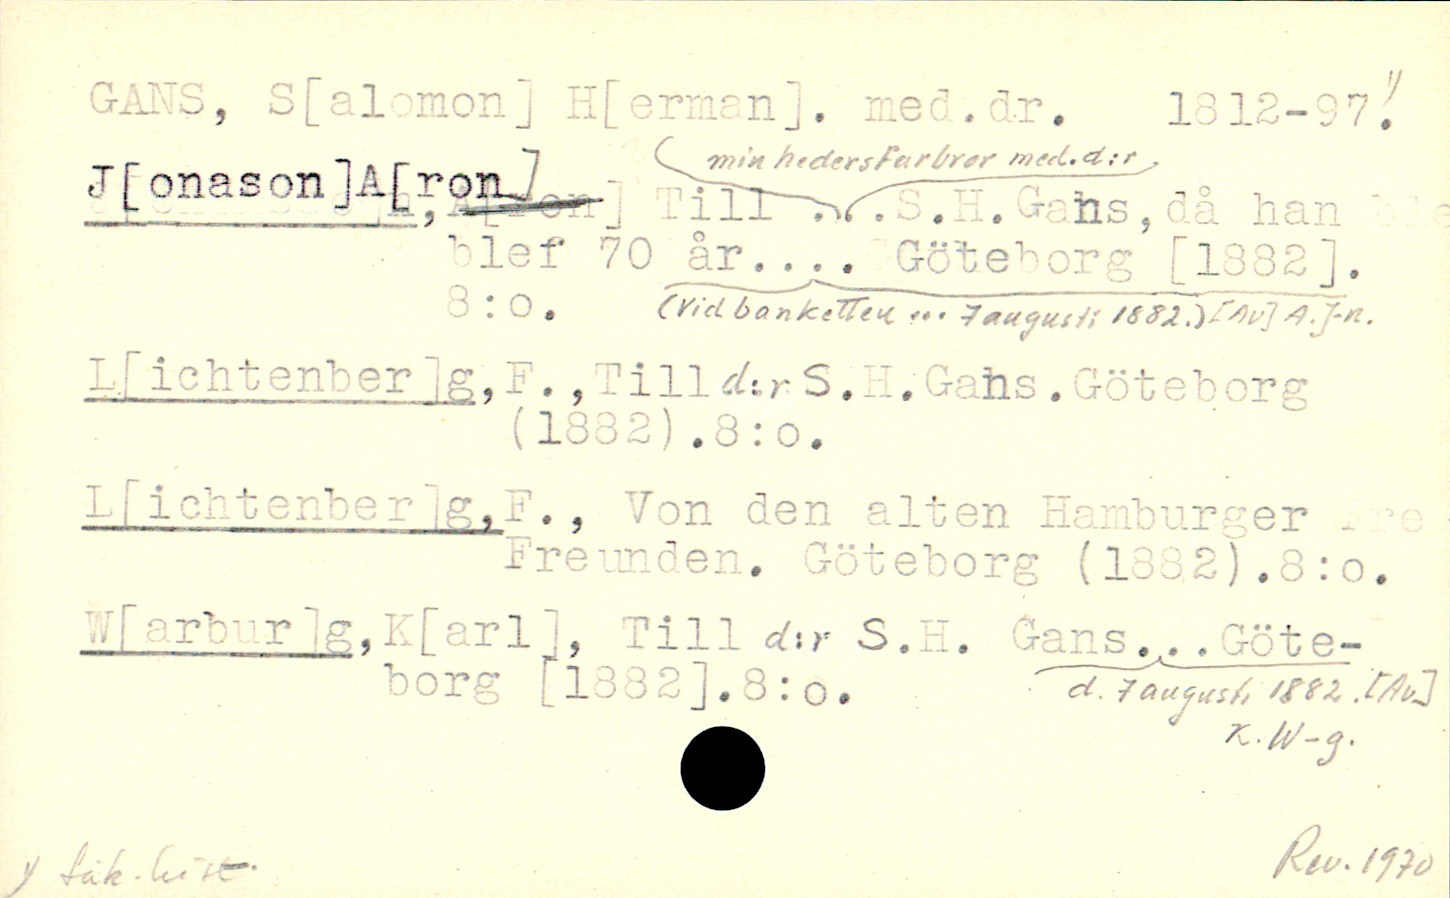 GANS, S[alomon] H[erman]. med.dr. 1812-97. 1)
min hedersfarbror med.d:r
J[onason]A[ron]
, A[ron] Till ....S.H.Gans,då han
blef 70 år.... Göteborg [1882].
8:o. (Vid banketten ... 7 augusti 1882.) [Av] A.J-n.
L[ichtenber]g,F.,Till d:r S.H.Gans.Göteborg
(1882).8:o.
L[ichtenber]g,F., Von den alten Hamburger Fre
Freunden. Göteborg (1882).8:o.
W[arbur]g,K[arl], Till d:r S.H. Gans...Göte-
borg [1882].8:o. d. 7 augusti 1882. [Av]
K. W-g.
1) Läk. hist.
Rev. 1970